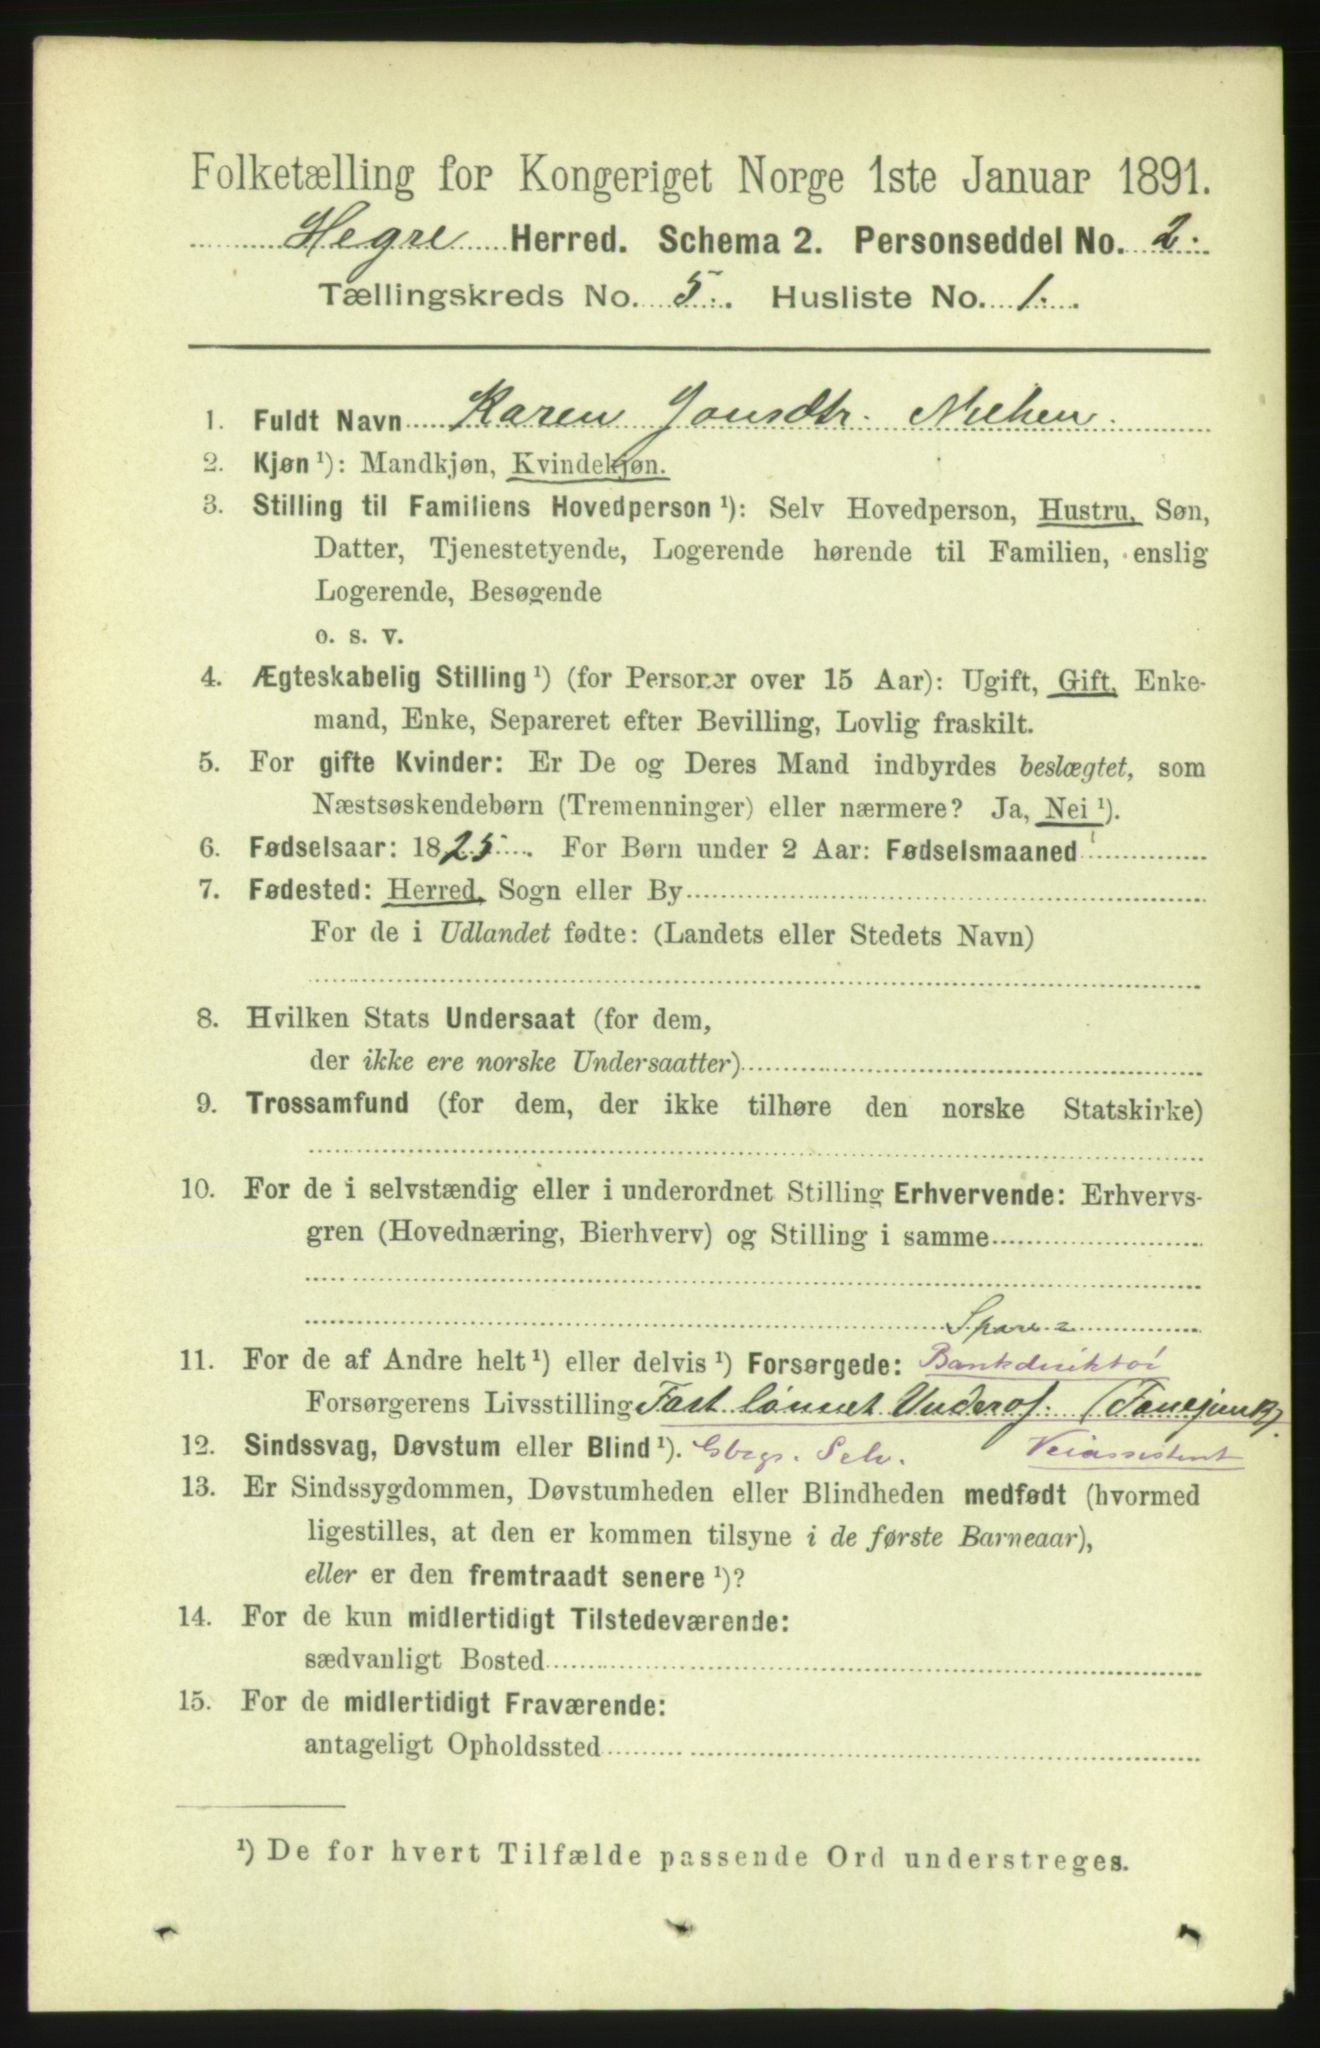 Folketælling for Kongeriget Norge 1ste Januar 1891.
Hegre Herred. Schema 2. Personseddel No. 2.
Tællingskreds No. 5. Husliste No. 1.
1. Fuldt Navn Karen Jonsdtr.
2. Kjøn ¹): Mandkjøn, Kvindekjøn.
3. Stilling til Familiens Hovedperson ¹): Selv Hovedperson, Hustru, Søn,
Datter, Tjenestetyende, Logerende hørende til Familien, enslig
Logerende, Besøgende
o. s. v.
4. Ægteskabelig Stilling ¹) (for Personer over 15 Aar): Ugift, Gift, Enke-
mand, Enke, Separeret efter Bevilling, Lovlig fraskilt.
5. For gifte Kvinder: Er De og Deres Mand indbyrdes beslægtet, som
Næstsøskendebørn (Tremenninger) eller nærmere? Ja, Nei ¹).
6. Fødselsaar: 1825. For Børn under 2 Aar: Fødselsmaaned
7. Fødested: Herred, Sogn eller By
For de i Udlandet fødte: (Landets eller Stedets Navn)
8. Hvilken Stats Undersaat (for dem,
der ikke ere norske Undersaatter)
9. Trossamfund (for dem, der ikke tilhøre den norske Statskirke)
10. For de i selvstændig eller i underordnet Stilling Erhvervende: Erhvervs-
gren (Hovednæring, Bierhverv) og Stilling i samme
Spare-
11. For de af Andre helt ¹) eller delvis ¹) Forsørgede: Bankdirektør
Forsørgerens Livsstilling Fast lønnet Underof. (Fanejunk).
12. Sindssvag, Døvstum eller Blind ¹). Gbrgs. Selv. Veiassistent
13. Er Sindssygdommen, Døvstumheden eller Blindheden medfødt (hvormed
ligestilles, at den er kommen tilsyne i de første Barneaar),
eller er den fremtraadt senere ¹)?
14. For de kun midlertidigt Tilstedeværende:
sædvanligt Bosted
15. For de midlertidigt Fraværende:
antageligt Opholdssted
¹) De for hvert Tilfælde passende Ord understreges.